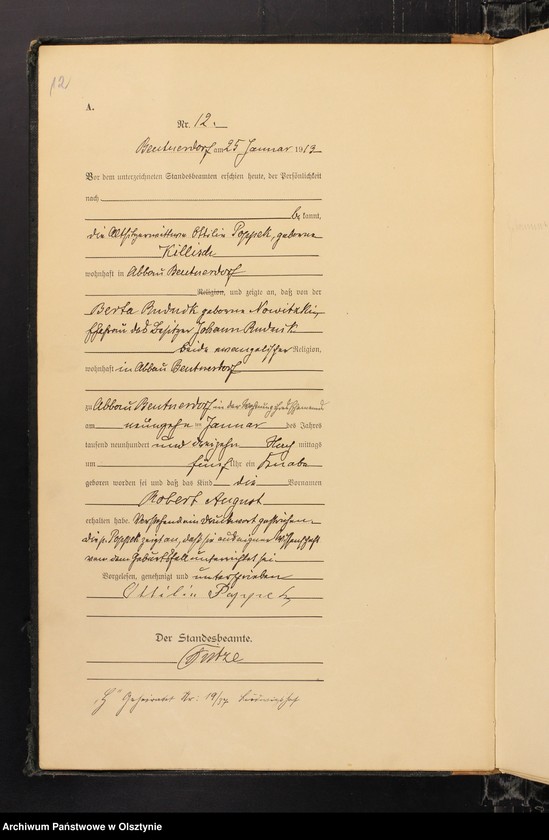 12
A.
Nr. 12.
Beutnerdorf am 25 Januar 1913
Vor dem unterzeichneten Standesbeamten erschien heute, der Persönlichkeit
nach
bekannt,
die Altsitzerwittwe Ottilie Poppek, geborene
Killisch
wohnhaft in Abbau Beutnerdorf
Religion, und zeigte an, daß von der
Berta Rudnik geborene Nowitzki,
Ehefrau des Besitzer Johann Rudnik
beide evangelischer Religion,
wohnhaft in Abbau Beutnerdorf
zu Abbau Beutnerdorf in der Wohnung
am neunzehn ten Januar des Jahres
tausend neunhundert und dreizehn Nachmittags
um fünf Uhr ein Knabe
geboren worden sei und daß das Kind die Vornamen
Robert August
erhalten habe. Vorstehend ein Druckwort gestrichen.
Die p. Poppek zeigt an, daß sie aus eigner Wissenschaft
von dem Geburtsfall unterrichtet sei.
Vorgelesen, genehmigt und unterschrieben
Ottilie Poppek
Der Standesbeamte.
Geheiratet Nr: 19/37
Archiwum Państwowe w Olsztynie